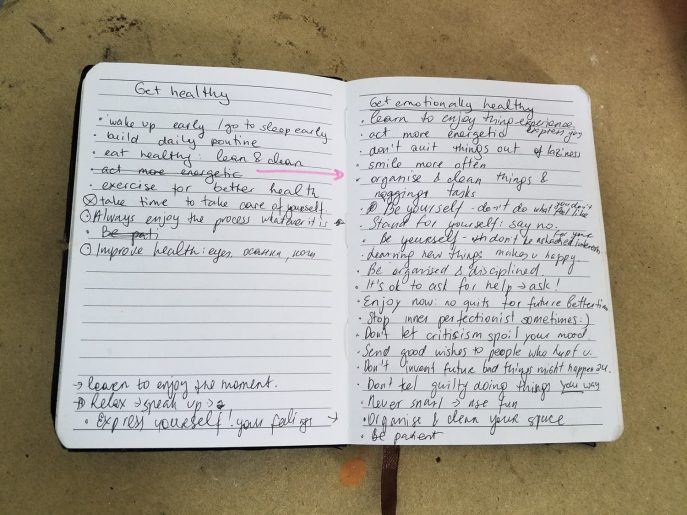 Get healthy
• wake up early / go to sleep early
• build daily routine
• eat healthy: lean & clean
• act more energetic
• exercise for better health
take time to take care of yourself
Always enjoy the process whatever it is
• Be pati
Improve health: eyes, осанка,
→ learn to enjoy the moment.
Relax → speak up →
• Express yourself! your feelings →
Get emotionally healthy
• learn to enjoy things experience
• act more energetic express joy
• don't quit things out of laziness
• smile more often
• organise & clean things &
tasks
Be yourself - don't do what you don't feel like
• Stand for yourself: say no.
• Be yourself - don't be ashamed for your interests
• Learning new things makes u happy
• Be organised & disciplined.
• It's ok to ask for help → ask!
• Enjoy now: no quits for future better
• Stop inner perfectionist sometimes :)
• Don't let criticism spoil your mood.
• Send good wishes to people who hurt u.
• Don't invent future bad things might happen 2u.
• Don't feel guilty doing things you way
• Never → use fun
• Organise & clean your space
• Be patient